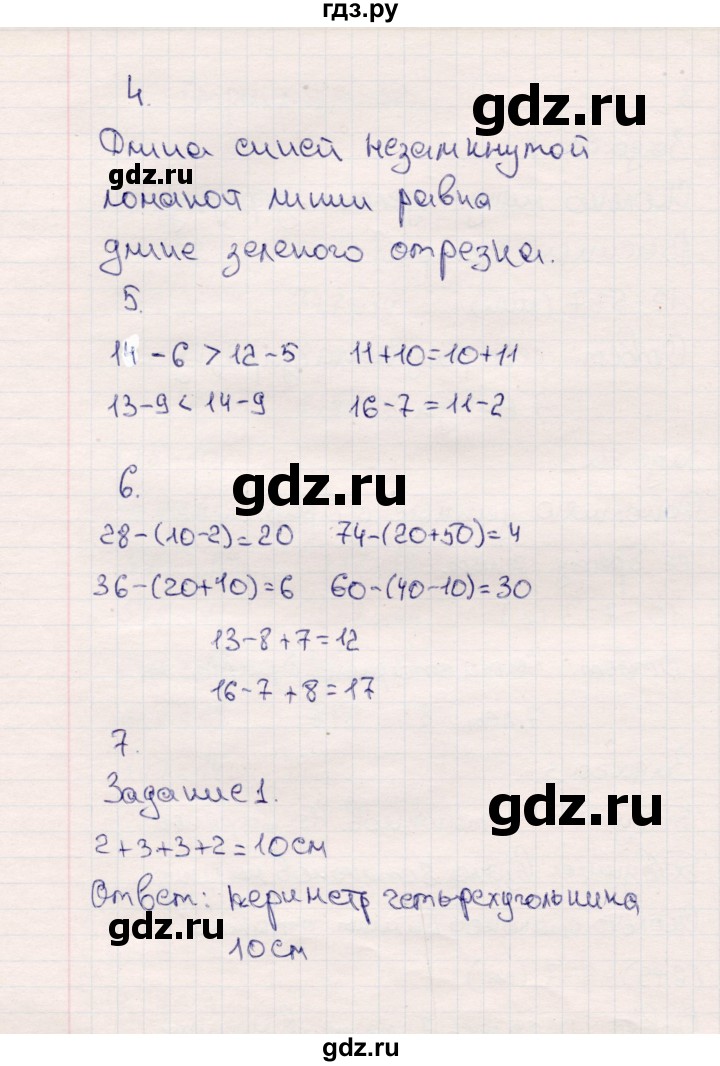 гдз.ру
4.
gdz.ru
Длина синей незамкнутой
gdz.ru
ломаной линии равна
длине зеленого отрезка.
5.
14-6>12-5 11+10=10+11
13-9<14-9 16-7=11-2
6.
gdz.ru
28-(10-2)=20 74-(20+50)=4
36-(20+10)=6 60-(40-10)=30
13-8+7=12
16-7+8=17
7.
Задание 1.
gdz.ru
2+3+3+2=10см
Ответ: периметр четырехугольника
gdz.ru
10см
gdz.ru